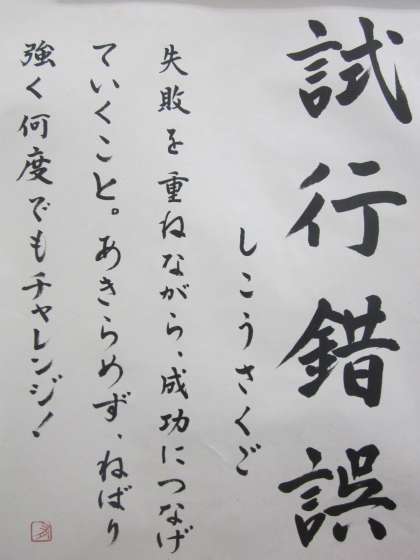 試行錯誤
しこうさくご
失敗を重ねながら、成功につなげ
ていくこと。あきらめず、ねばり
強く何度でもチャレンジ！